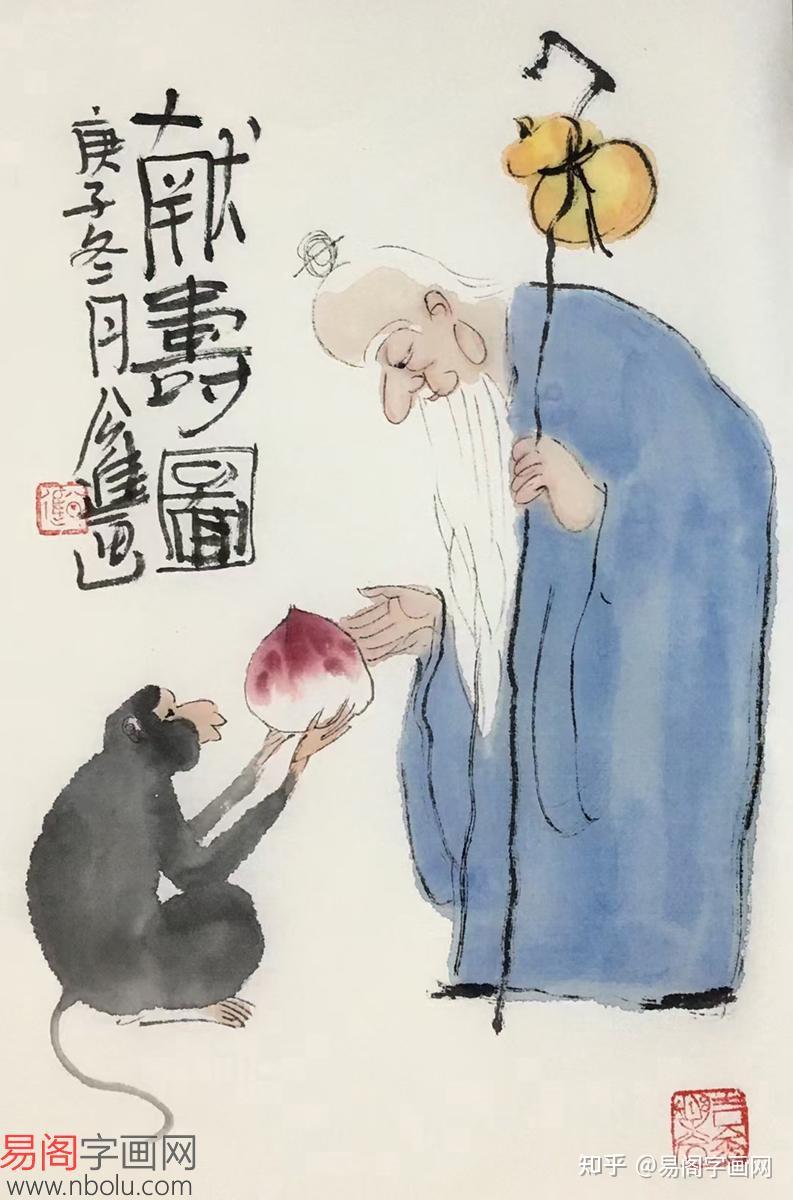 献壽圖
庚子冬月公隹画
易阁字画网
www.nbolu.com
知乎 @易阁字画网